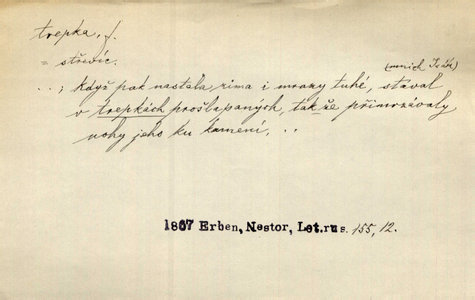 trepka, f.
= střevíc.
(mnich Isák)
..; Když pak nastala zima i mrazy tuhé, stával
v trepkách prošlapaných, tak že přimrzávaly
nohy jeho ku kamení, ..
1867 Erben, Nestor, Let.rus. 155, 12.